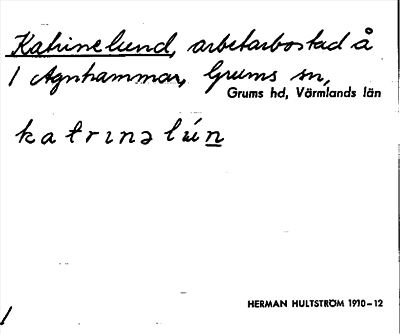 Katrinelund, arbetarbostad å
/ Agnhammar, Grums sn,
Grums hd, Värmlands län
katrinəlún
HERMAN HULTSTRÖM 1910-12
/